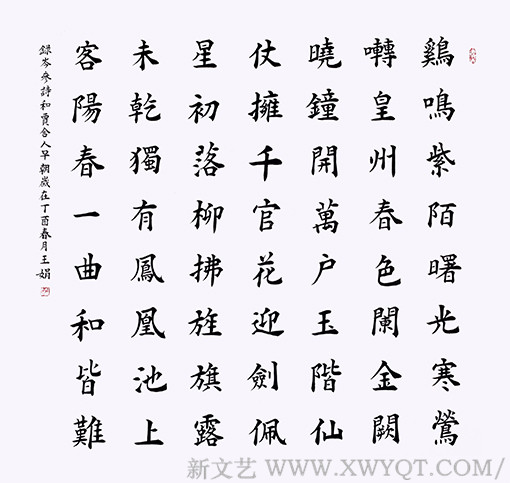 鷄鳴紫陌曙光寒鶯
囀皇州春色闌金闕
曉鐘開萬户玉階仙
仗擁千官花迎劍佩
星初落柳拂旌旗露
未乾獨有鳳凰池上
客陽春一曲和皆難
録岑參詩和賈舍人早朝歲在丁酉春月王娟
新文艺 WWW.XWYQT.COM/